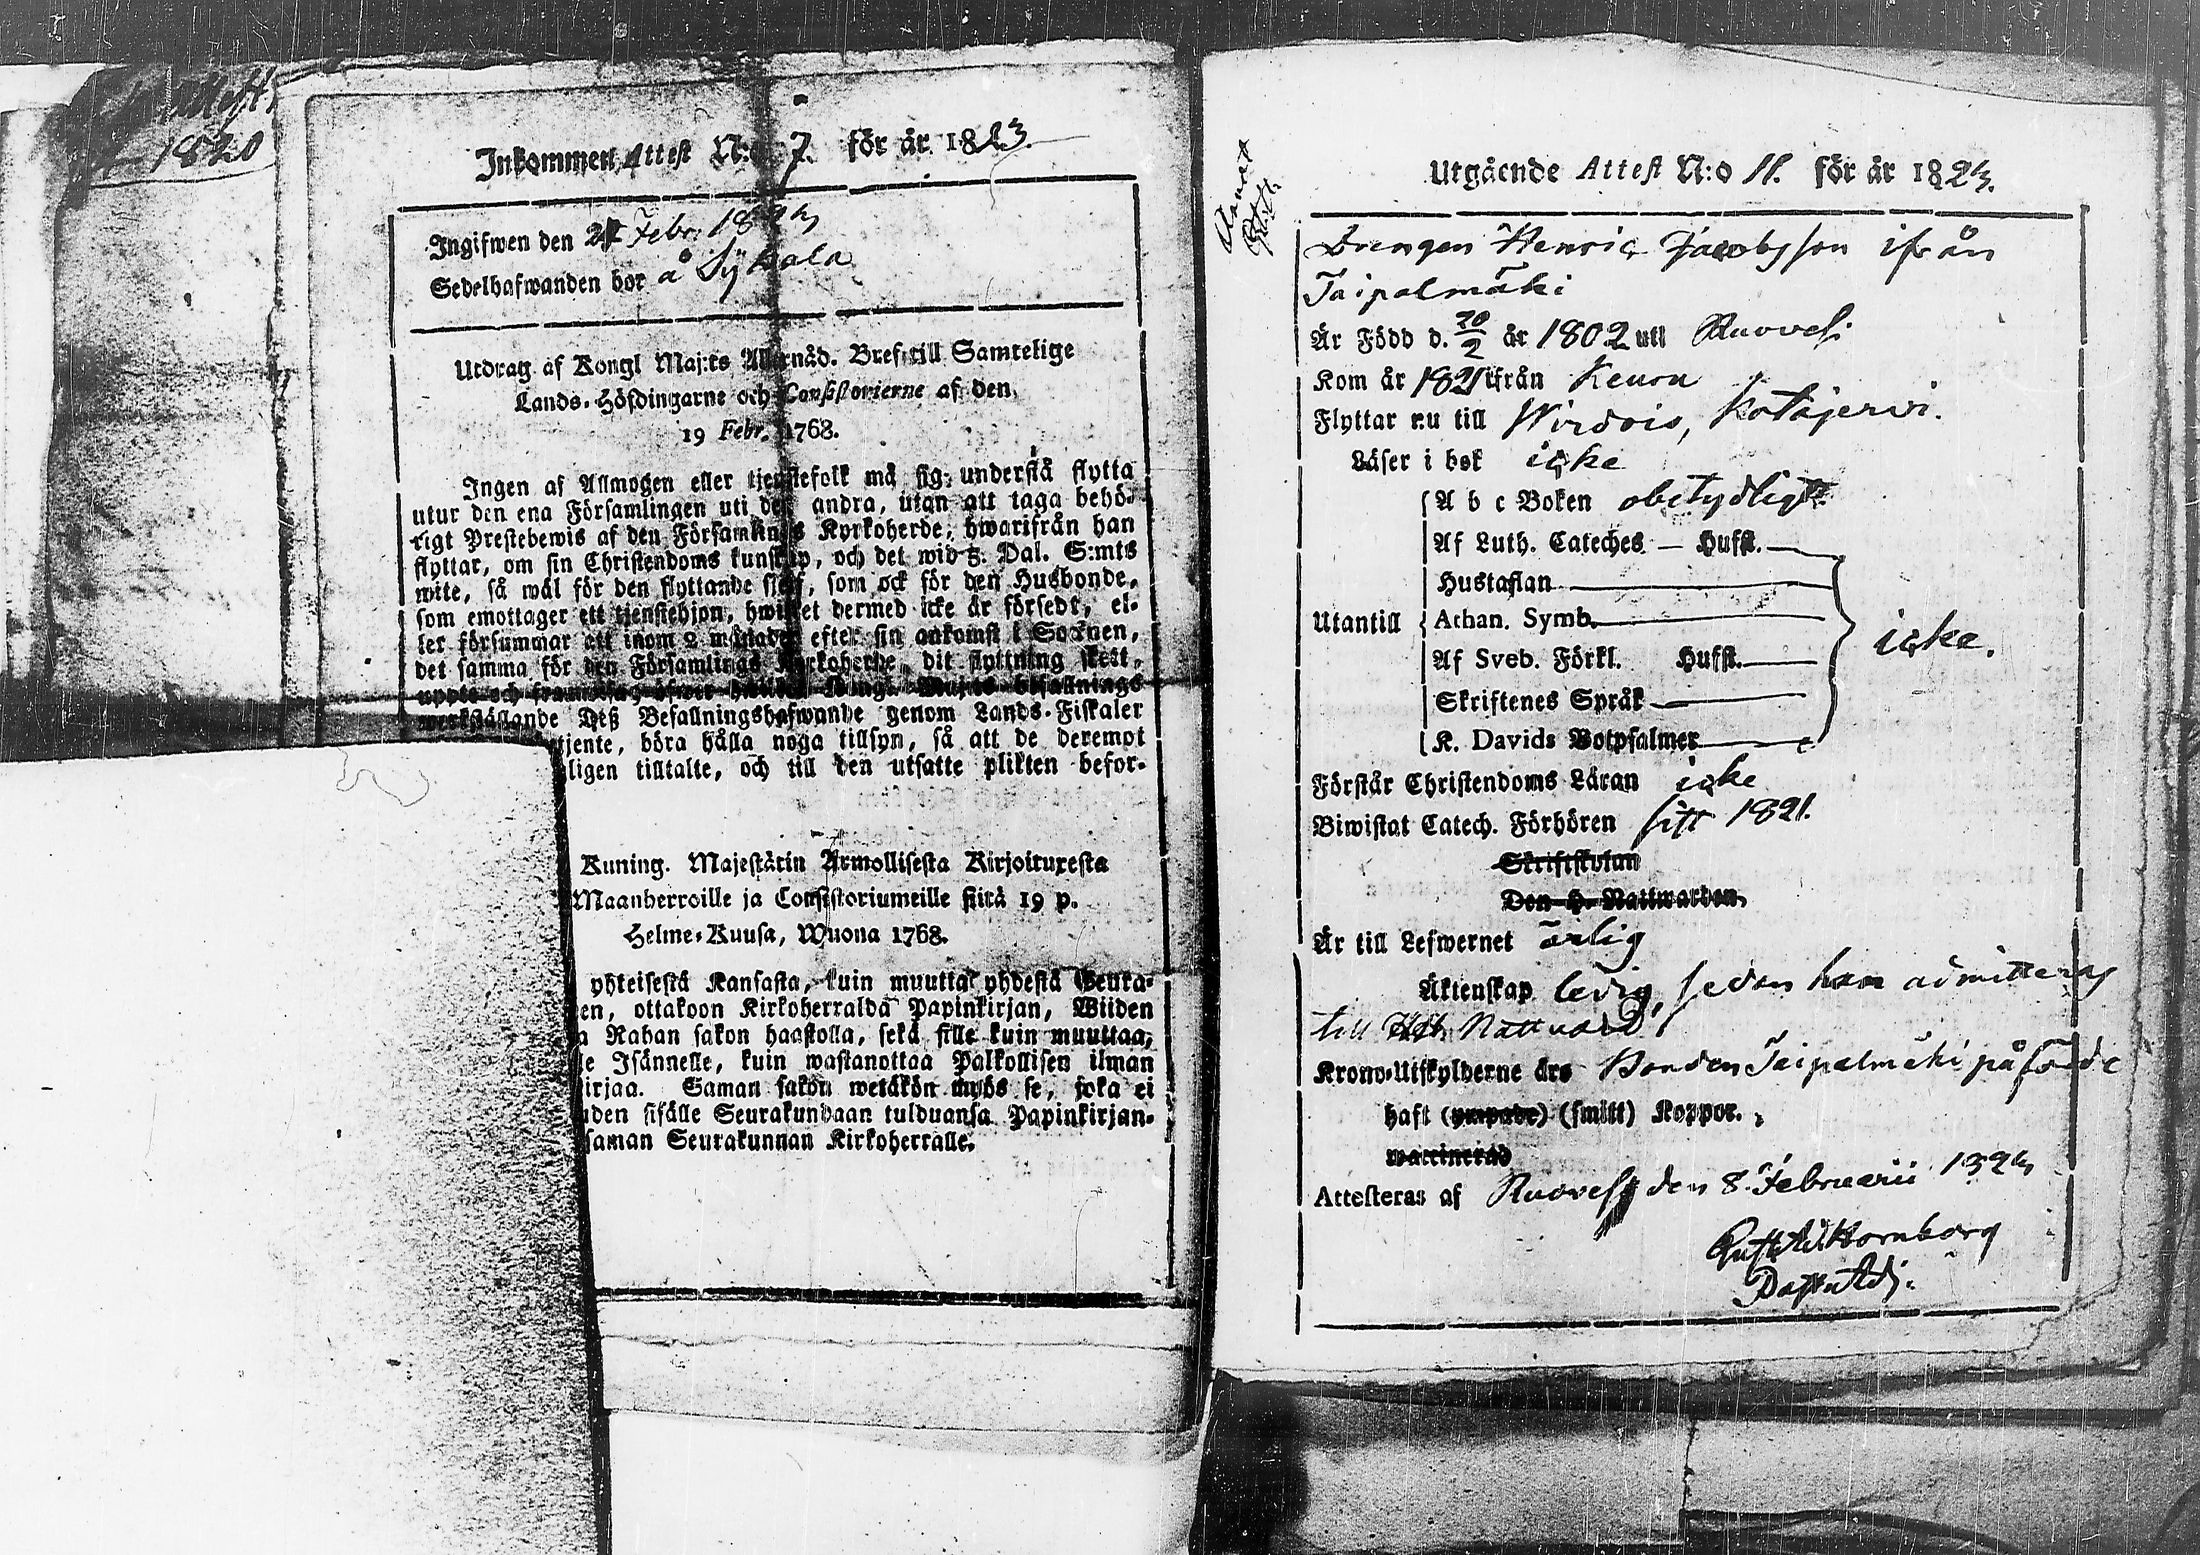 1820
Inkommen Attest N:o 7. för år 1823.
Ingifwen den 21 Febr. 1823
Sedelhafwanden bor å Sykala
Utdrag af Kongl Maj:ts Allernåd. Bref till Samtelige
Lands-Höfdingarne och Consistorierne af den
19 Febr. 1768.
Ingen af Allmogen eller tjenstefolk må sig understå flytta
utur den ena Församlingen uti den andra, utan att taga behö-
rigt Prestebewis af den Församlings Kyrkoherde, hwarifrån han
flyttar, om sin Christendoms kunskap, och det wid 5. Dal. S:mts
wite, så wäl för den flyttande sjelf, som ock för den Husbonde,
som emottager ett tjenstehjon, hwilket dermed icke är försedt, el-
ler försummar att inom 2 månader efter sin ankomst i Socknen,
det samma för den Församlings Kyrkoherde, dit flyttning skett,
uppte och framwisa, öfwer hwilken Kongl. Maj:ts befallnings
werkställande Deß Befallningshafwande genom Lands-Fiskaler
tjente, böra hålla noga tillsyn, så att de deremot
ligen tilltalte, och till den utsatte plikten befor-
Kuning. Majestätin Armollisesta Kirjoituxesta
Maanherroille ja Consistoriumeille siitä 19 p.
Helme-Kuusa, Wuona 1768.
yhteisestä Kansasta, kuin muutta yhdestä Seura-
en, ottakoon Kirkoherralda Papinkirjan, Wiiden
a Rahan sakon haastolla, sekä sille kuin muuttaa,
le Isännelle, kuin wastanottaa Palkollisen ilman
irjaa. Saman sakon wetäkön myös se, joka ei
uden sisälle Seurakundaan tulduansa Papinkirjan-
saman Seurakunnan Kirkoherralle.
Utgående Attest N:o 11. för år 1823.
Drengen Henric Jacobsson ifrån
Taipalmäki
Är Född d. 20/2 år 1802 uti Ruovesi
Kom år 1821 ifrån Keuru
Flyttar nu till Wirdois, Kotajerwi.
Läser i bok icke
A b c Boken obetydligt
Af Luth. Cateches — Hufst.
Hustaflan
Utantill Athan. Symb. icke.
Af Sveb. Förkl. Hufst.
Skriftenes Språk
K. Davids Botpsalmer
Förstår Christendoms Läran icke
Biwistat Catech. Förhören sist 1821.
Skriftskolan
Den H. Nattwarden
Är till Lefwernet ärlig
Äktenskap ledig, sedan han admitteras
till Nattward
Krono-Utskylderne äro Bonden Taipalmäki påförde
haft (ympade) (smitt) Koppor.
waccinerad
Attesteras af Ruovesi den 8. Februarii 1823
Hornborg